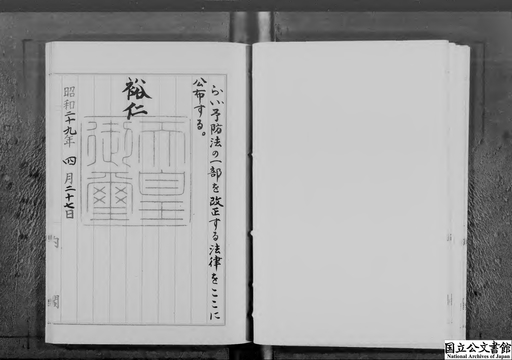 らい予防法の一部を改正する法律をここに
公布する。
裕仁
天皇
御璽
昭和二十九年 四月二十七日
国立公文書館
National Archives of Japan